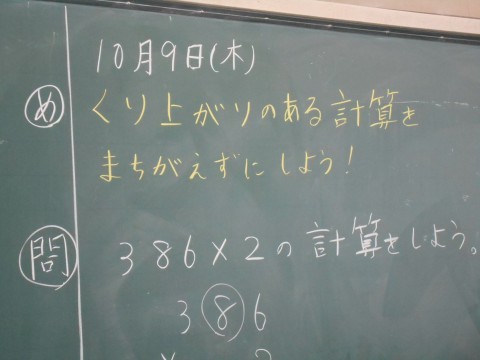 10月9日(木)
め くり上がりのある計算を
まちがえずにしよう!
問 386×2の計算をしよう。
386
× 2